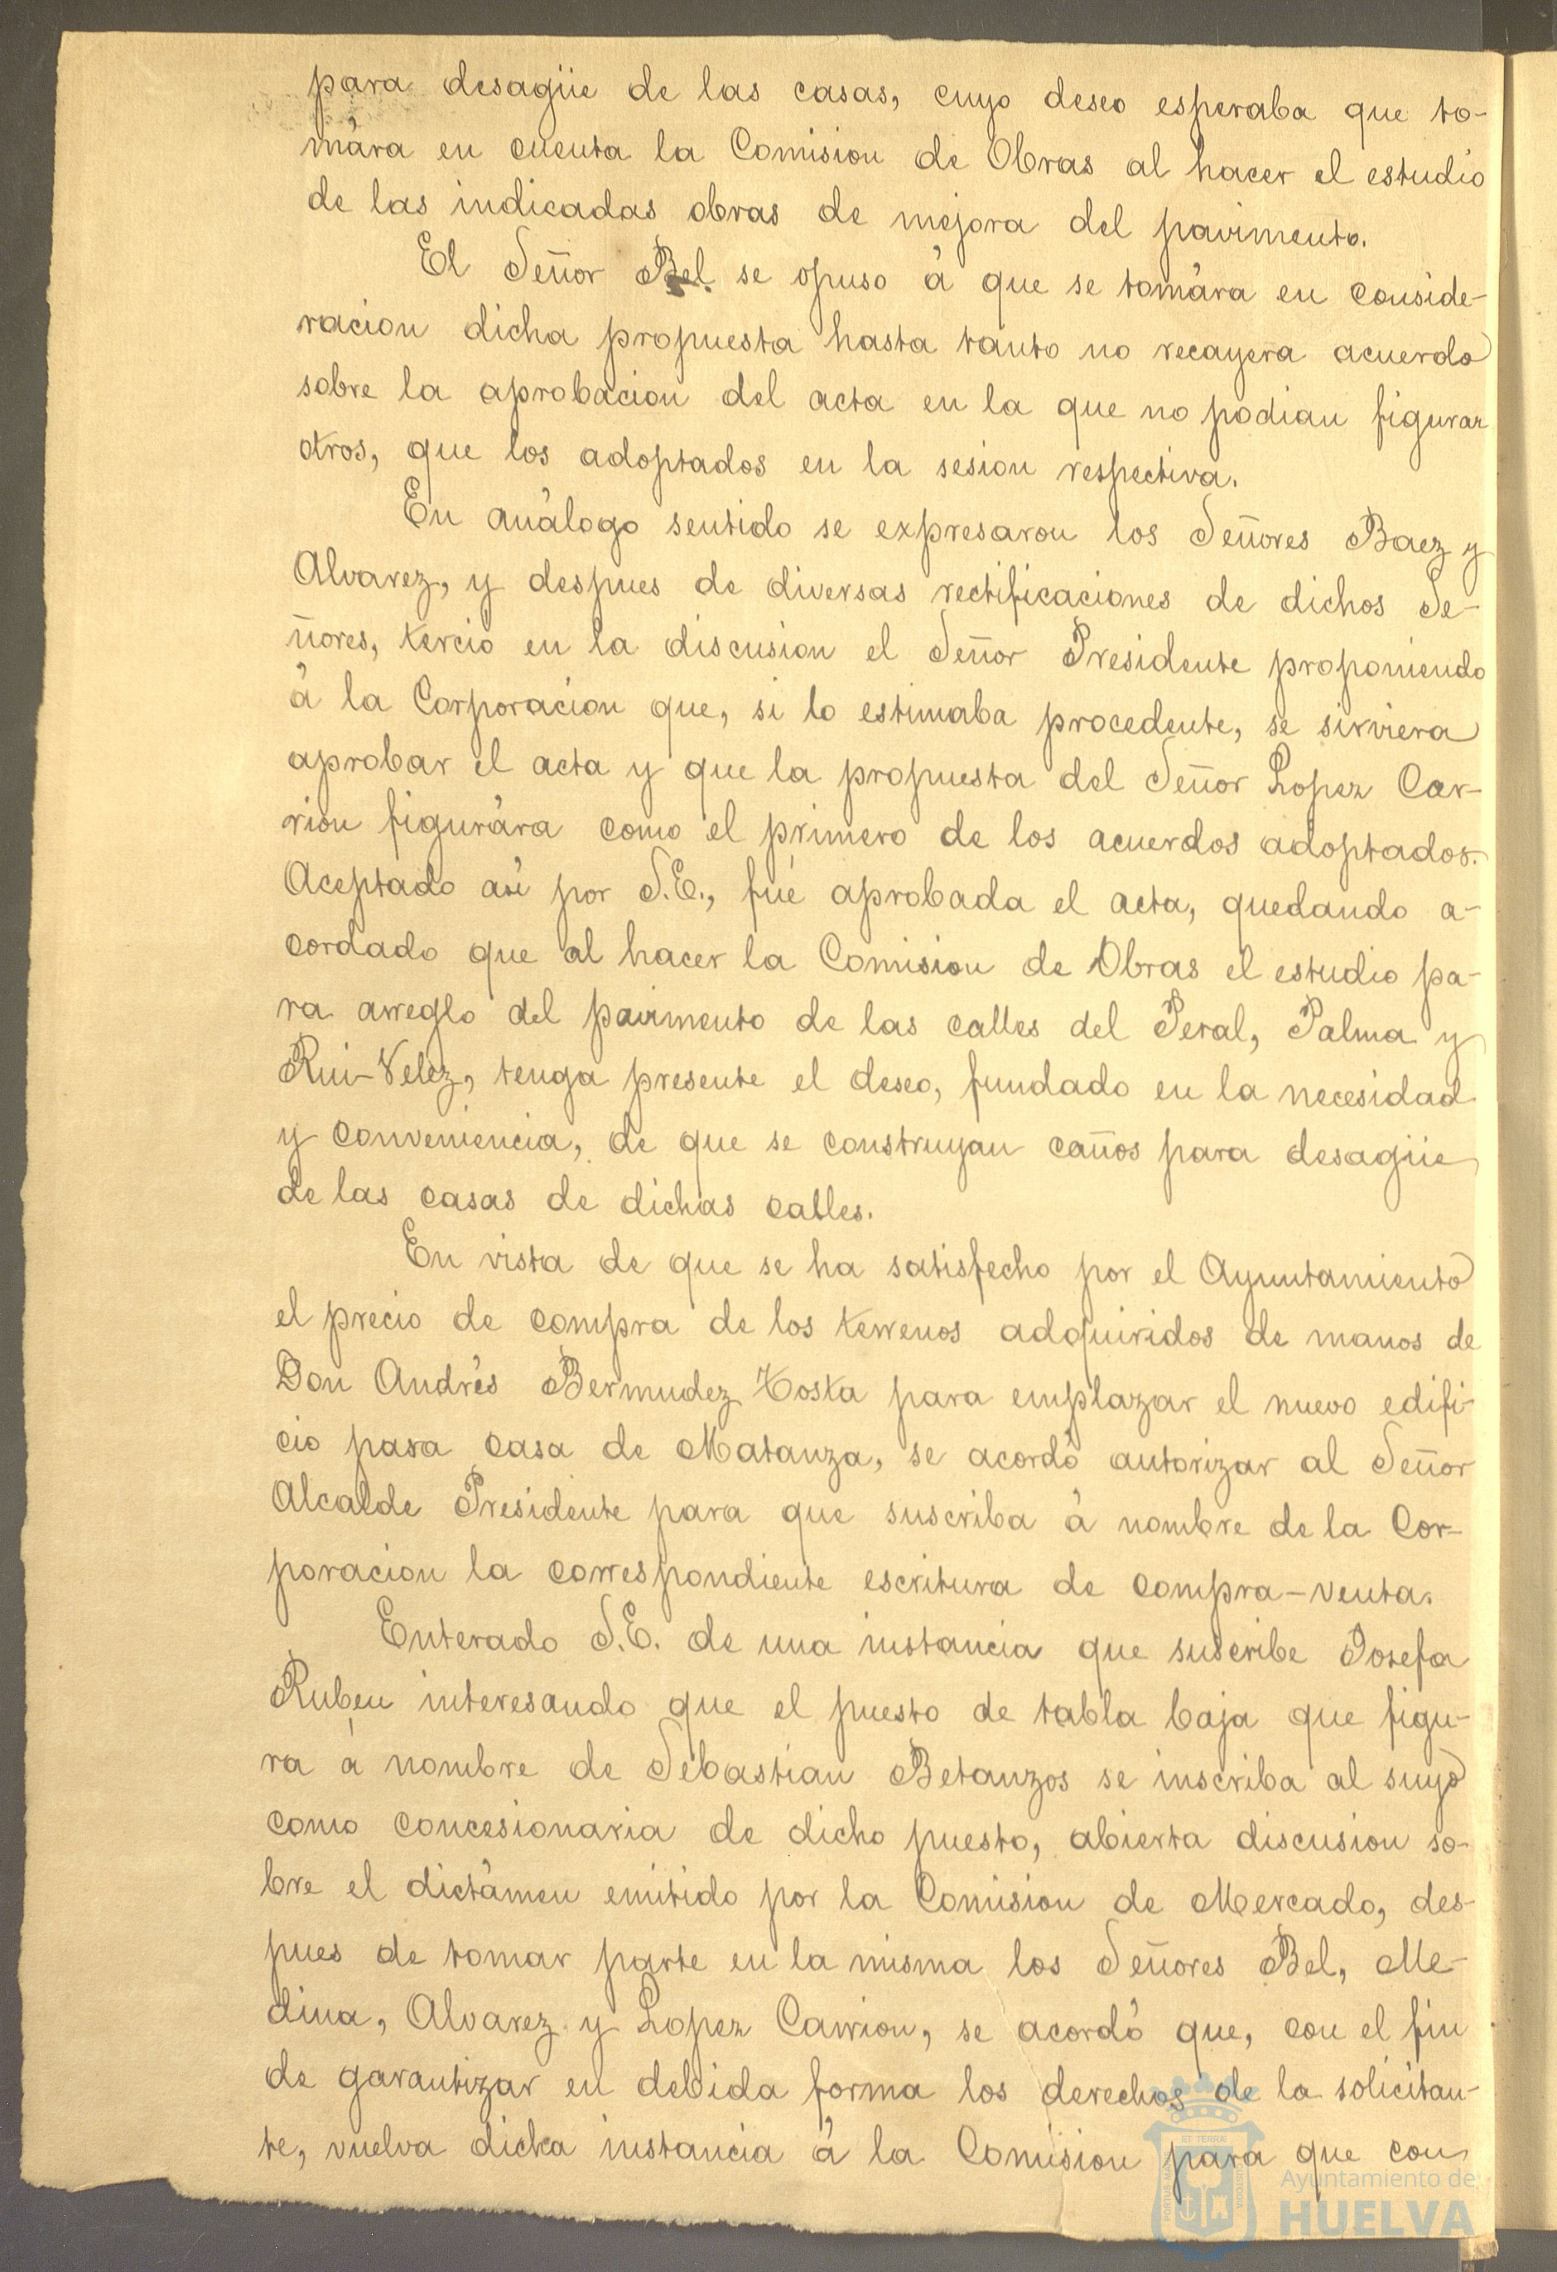 para desagüe de las casas, cuyo deseo esperaba que to-
mára en cuenta la Comision de Obras al hacer el estudio
de las indicadas obras de mejora del pavimento.
El Señor Bel se opuso á que se tomára en conside-
racion dicha propuesta hasta tanto no recayera acuerdo
sobre la aprobacion del acta en la que no podian figurar
otros, que los adoptados en la sesion respectiva.
En análogo sentido se expresaron los Señores Baez y
Alvarez, y despues de diversas rectificaciones de dichos Se-
ñores, tercio en la discusion el Señor Presidente proponiendo
á la Corporacion que, si lo estimaba procedente, se sirviera
aprobar el acta y que la propuesta del Señor Lopez Car-
rion figurára como el primero de los acuerdos adoptados.
Aceptado así por S.E., fué aprobada el acta, quedando a-
cordado que al hacer la Comision de Obras el estudio pa-
ra arreglo del pavimento de las calles del Peral, Palma y
Rui-Velez, tenga presente el deseo, fundado en la necesidad
y conveniencia, de que se construyan caños para desagüe
de las casas de dichas calles.
En vista de que se ha satisfecho por el Ayuntamiento
el precio de compra de los terrenos adquiridos de manos de
Don Andrés Bermudez Tosta para emplazar el nuevo edifi-
cio para casa de Matanza, se acordó autorizar al Señor
Alcalde Presidente para que suscriba á nombre de la Cor-
poracion la correspondiente escritura de compra-venta.
Enterado S.E. de una instancia que suscribe Josefa
Ruben interesando que el puesto de tabla baja que figu-
ra á nombre de Sebastian Betanzos se inscriba al suyo
como concesionaria de dicho puesto, abierta discusion so-
bre el dictámen emitido por la Comision de Mercado, des-
pues de tomar parte en la misma los Señores Bel, Me-
dina, Alvarez y Lopez Carrion, se acordó que, con el fin
de garantizar en debida forma los derechos de la solicitan-
te, vuelva dicha instancia á la Comision para que con
Ayuntamiento de
HUELVA